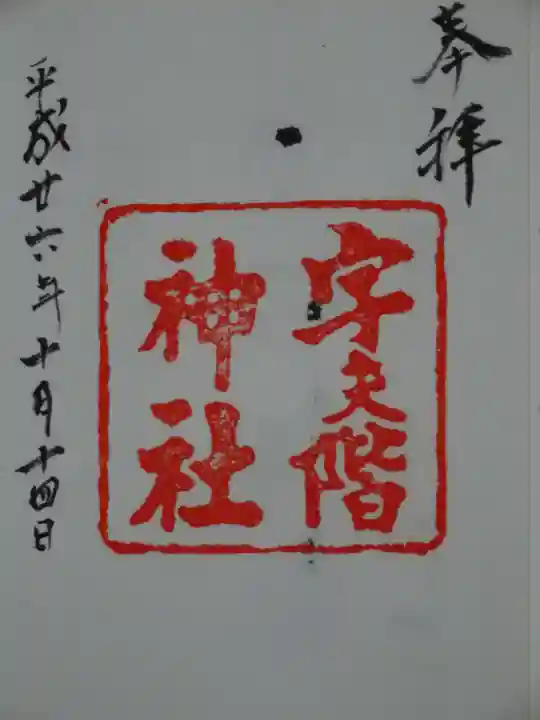 奉拝
宇夫階
神社
平成廿六年十月十四日